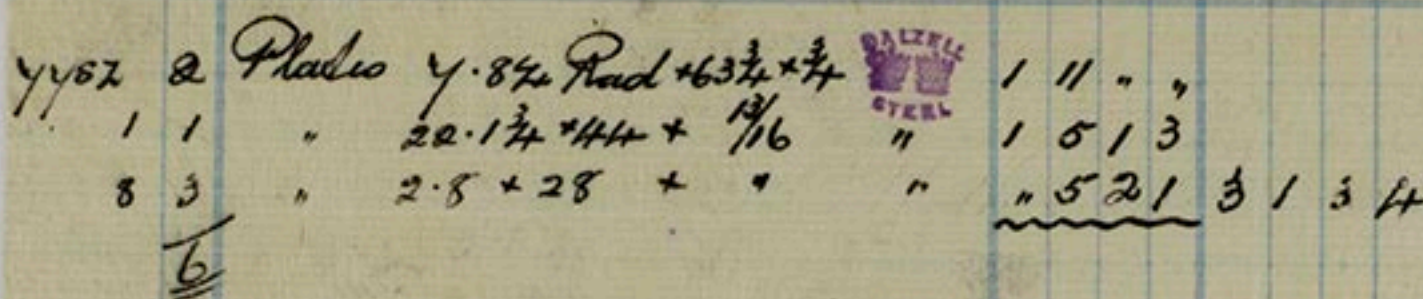 7752 2 Plates 7.8¼ Rad × 63¾ × ¾ DALZELL STEEL 1 11 " "
1 1 " 22.1¾ × 44 × 13/16 " 1 5 1 3
8 3 " 2.8 × 28 × " " " 5 2 1 3 1 3 4
6